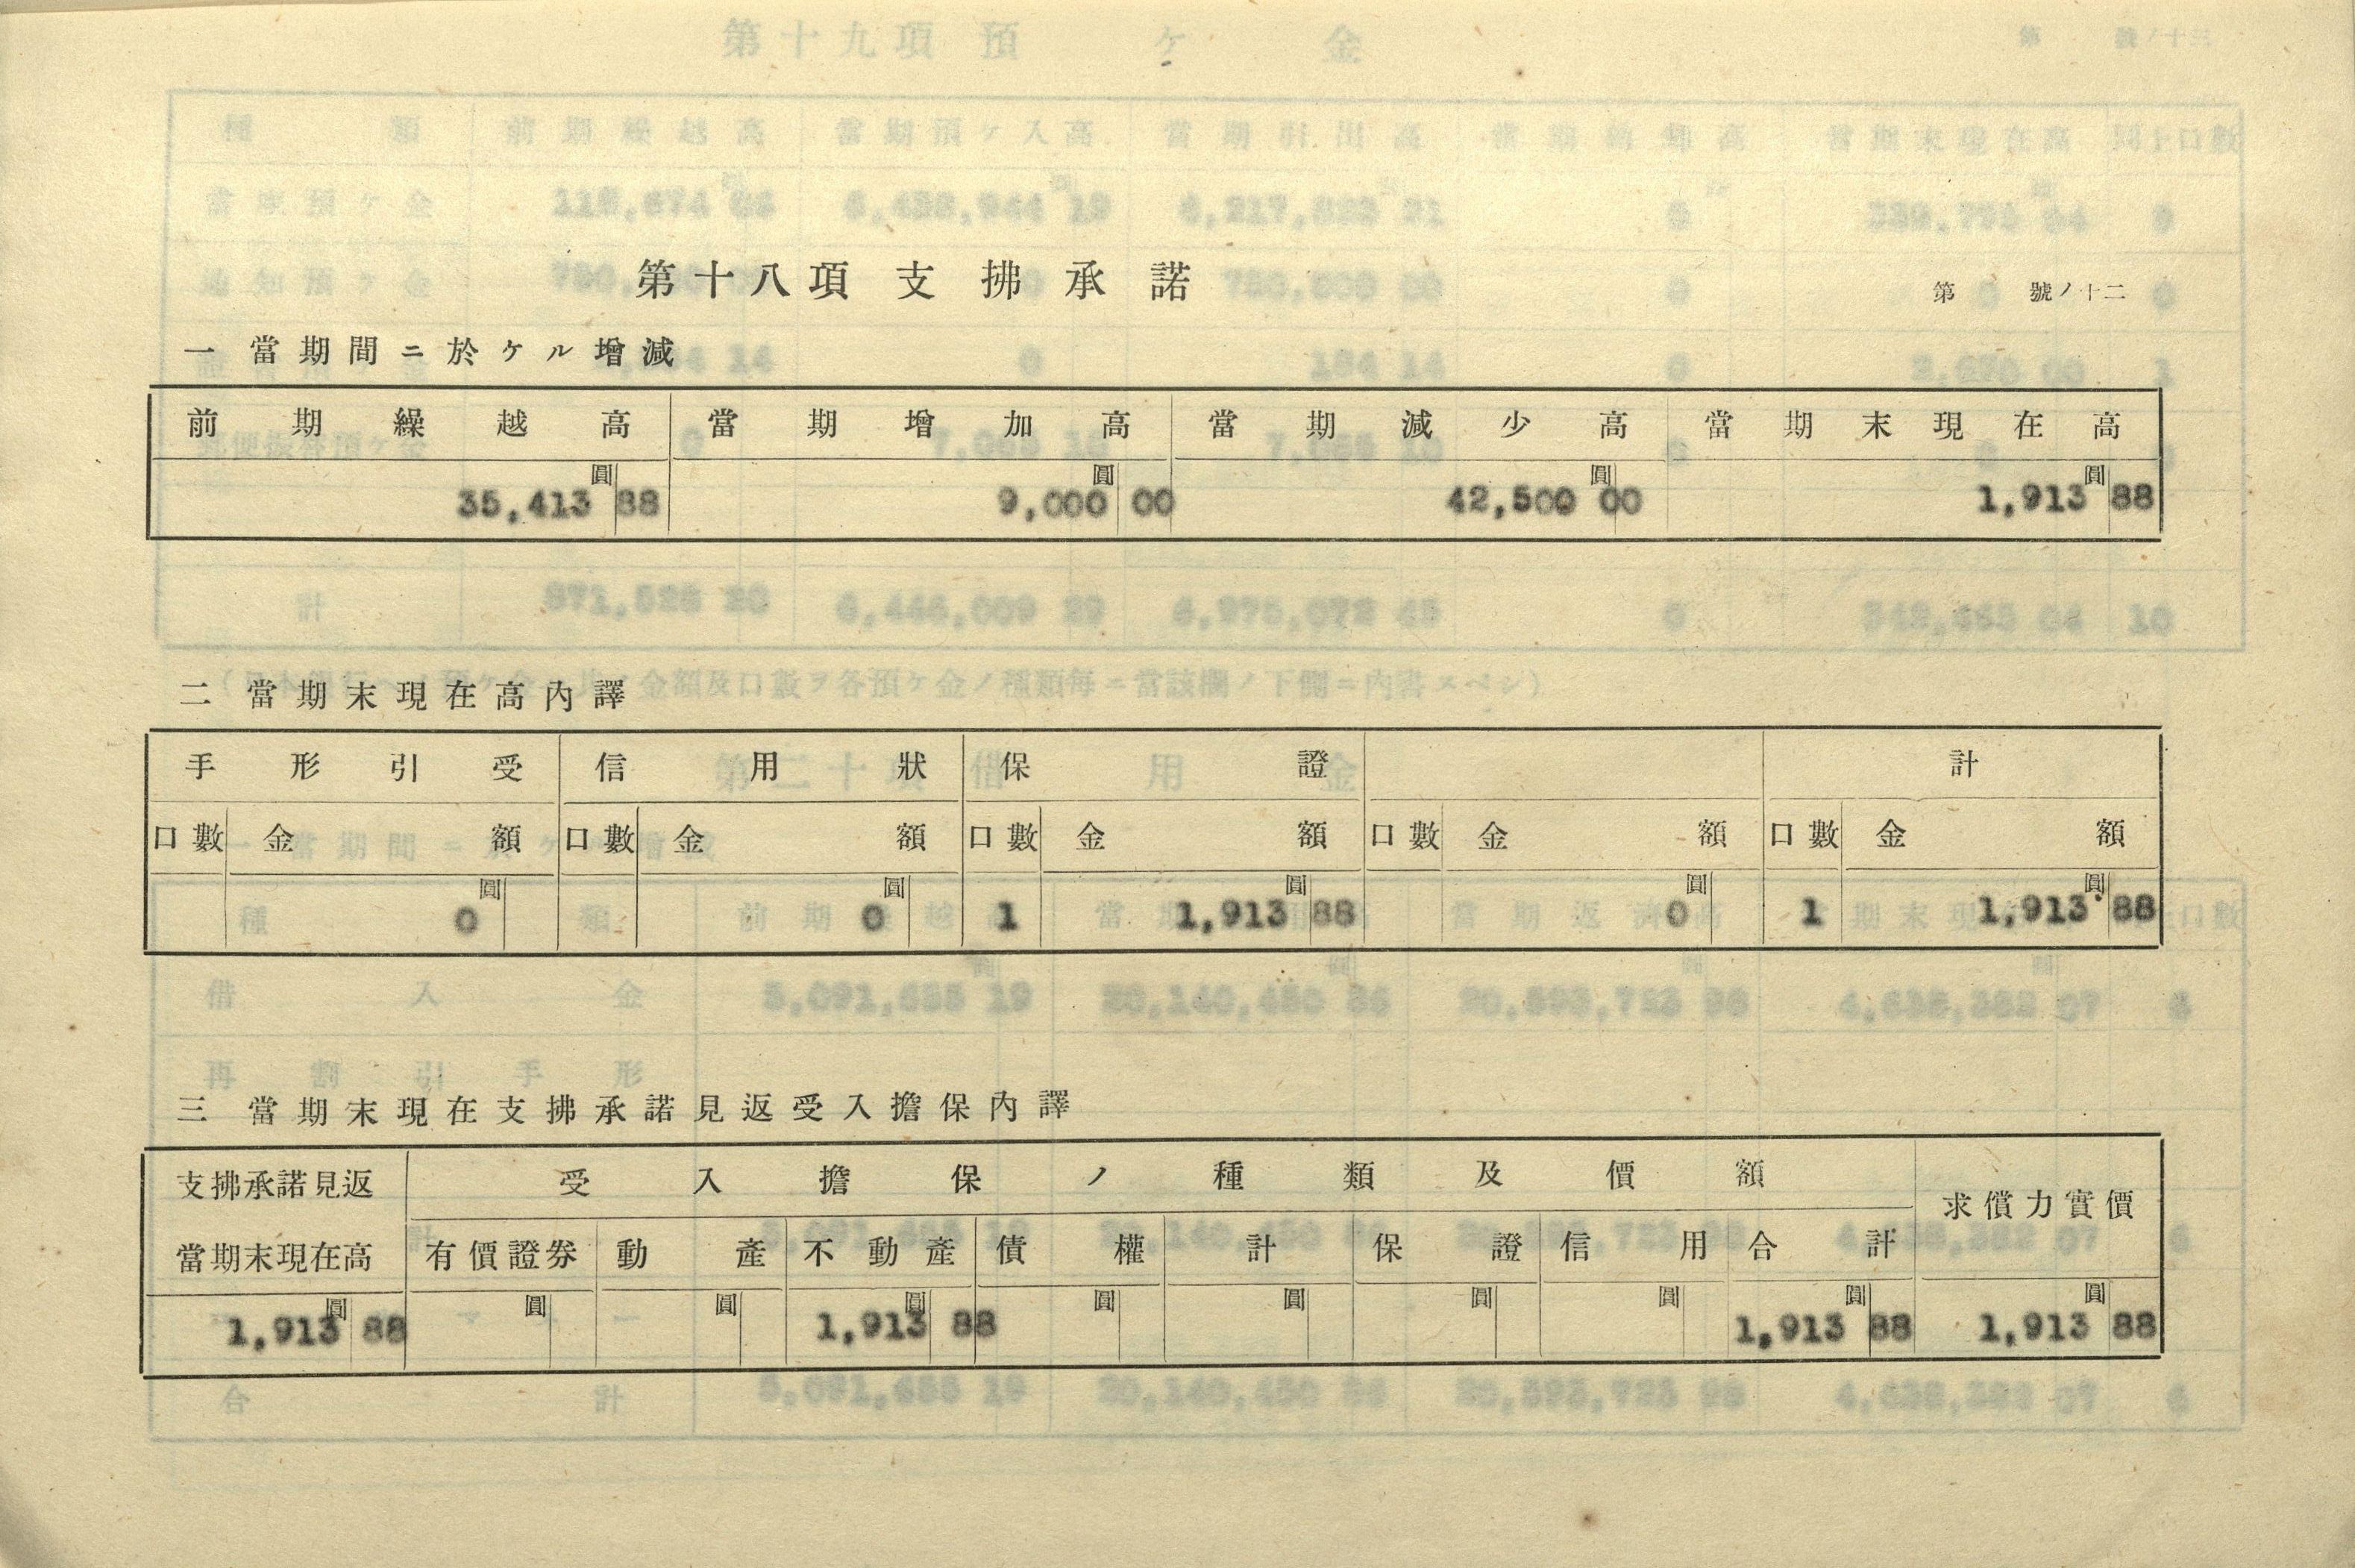 第十八項 支拂承諾
第 號ノ十二
一 當期間ニ於ケル增減
前期繰越高 當期增加高 當期減少高 當期末現在高
圓 圓 圓 圓
35,413 88 9,000 00 42,500 00 1,913 88
二 當期末現在高內譯
手形引受 信用狀 保證 計
口數 金額 口數 金額 口數 金額 口數 金額 口數 金額
圓 圓 圓 圓 圓
0 0 1 1,913 88 0 1 1,913 88
三 當期末現在支拂承諾見返受入擔保內譯
支拂承諾見返 受入擔保ノ種類及價額 求償力實價
當期末現在高 有價證券 動產 不動產 債權 計 保證 信用 合計
圓 圓 圓 圓 圓 圓 圓 圓 圓 圓
1,913 88 1,913 88 1,913 88 1,913 88